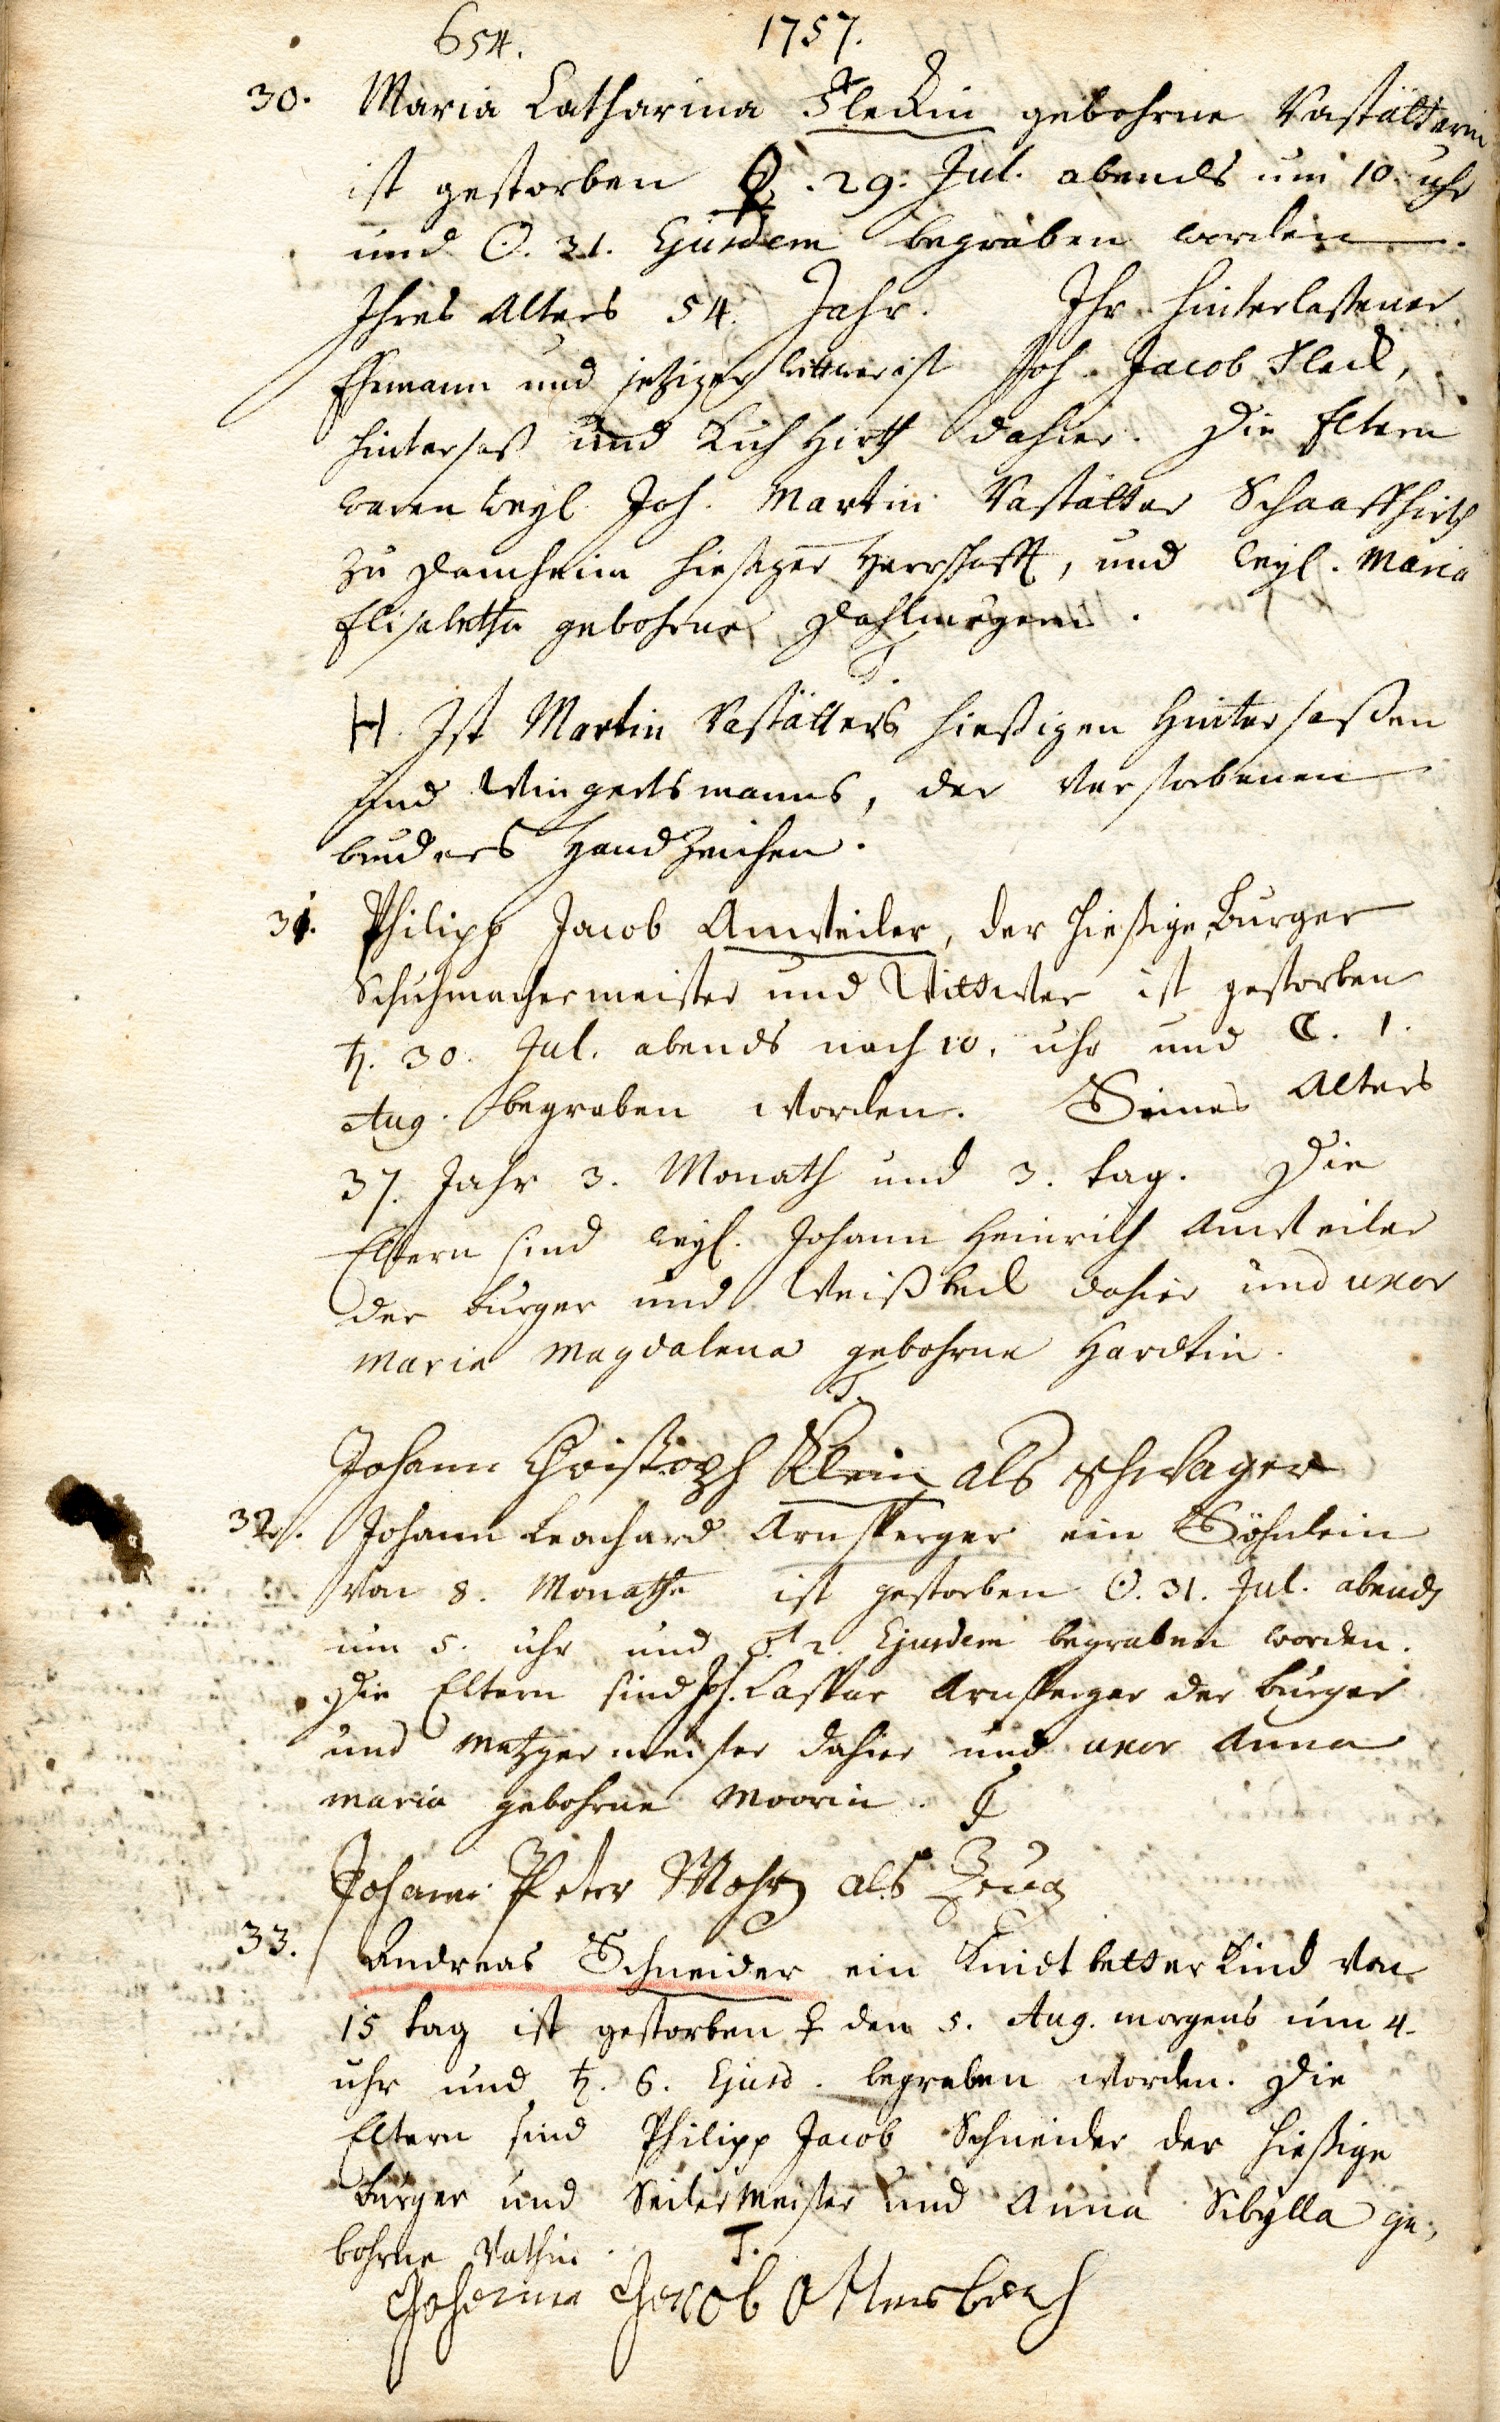 654. 1757.
30. Maria Catharina Fleckin gebohrne Vastätterin
ist gestorben ♀. 29. Jul. abends um 10. uhr
und ☉. 31. Ejusdem begraben worden.
Ihres Alters 54. Jahr. Ihr hinterlaßener
Ehemann und jetziger wittwer ist Joh. Jacob Fleck,
hintersaß und Kuh Hirth dahier. Die Eltern
waren weyl. Joh. Martin Vastätter Schaaffhirth
zu Damheim hiesiger Herrschafft, und weyl. Maria
Elisabetha gebohrne
H. Ist Martin Vastätters hießigen Hintersaßen
und Wingertsmanns, der verstorbenen
bruders Handzeichen.
31. Philipp Jacob Annweiler, der hießige Burger
Schuhmachermeister und Wittwer ist gestorben
♄. 30. Jul. abends nach 10. uhr und ☾. 1.
Aug. begraben worden. Seines Alters
37. Jahr 3. Monath und 3. tag. Die
Eltern sind weyl. Johann Heinrich Annweiler
der burger und Weißbeck dahier und uxor
Maria Magdalena gebohrne Hardtin.
T.
Johann Christoph Klein als schwager
32. Johann Leonhard Arnsperger ein Söhnlein
von 8. Monathe ist gestorben ☉. 31. Jul. abends
um 5. uhr und ♂. 2. Ejusdem begraben worden.
Die Eltern sind Joh. Caspar Arnsperger der burger
und Metzger meister dahier und uxor Anna
Maria gebohrne Moorin. T
Johann Peter Mohr als Zeug
33. Andreas Schneider ein Kindbetter Kind von
15 tag ist gestorben ♀ den 5. Aug. morgens um 4.
uhr und ♄. 6. Ejusd. begraben worden. Die
Eltern sind Philipp Jacob Schneider der hießige
burger und Seilermeister und Anna Sibylla ge-
bohrne Vathin. T.
Johanna Jacob